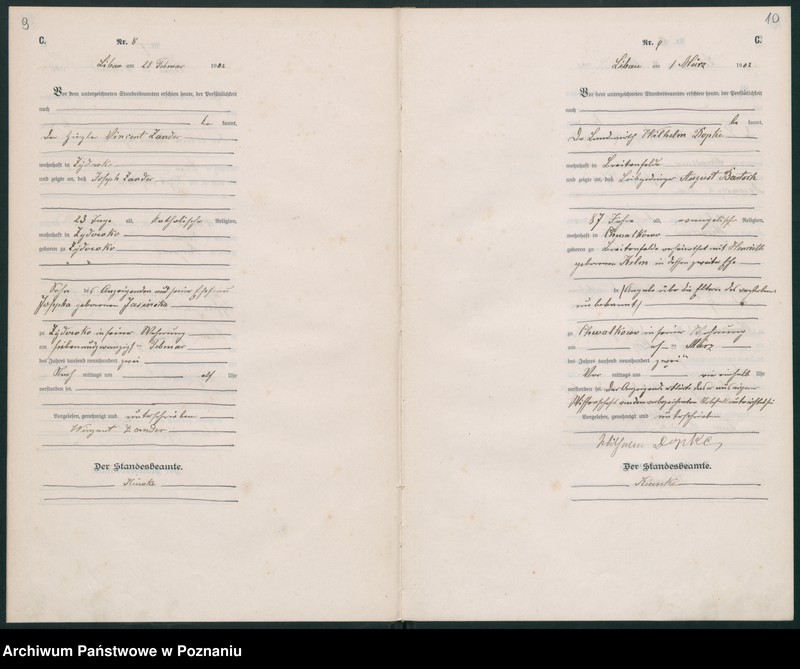 9
C.
Nr. 8
Libau am 28 Februar 1902
Vor dem unterzeichneten Standesbeamten erschien heute, der Persönlichkeit
nach
be kannt,
Vincent Zander
wohnhaft in Zydowko
und zeigte an, daß Joseph Zander
23 Tage alt, katholischer Religion,
wohnhaft in Zydowko
geboren zu Zydowko
Sohn des Anzeigenden und seiner Ehefrau
Josepha geborenen
zu Zydowko in seiner Wohnung
am siebenundzwanzig Februar
des Jahres tausend neunhundert zwei
Nach mittags um elf Uhr
verstorben sei.
Vorgelesen, genehmigt und unterschrieben
Zander
Der Standesbeamte.
10
C.
Nr. 9
Libau am 1 März 1902
Vor dem unterzeichneten Standesbeamten erschien heute, der Persönlichkeit
nach
be kannt,
Der Landwirth Wilhelm Dopke
wohnhaft in Breitenfelde
und zeigte an, daß August
87 Jahre alt, evangelischer Religion,
wohnhaft in Chwalkowo
geboren zu Breitenfelde verheirathet mit
geborenen Helm in dessen zweiter Ehe
(Angabe über die Eltern des
unbekannt)
zu Chwalkowo in seiner Wohnung
am März
des Jahres tausend neunhundert zwei
Vor mittags um Uhr
verstorben sei. Der Anzeigende erklärte aus eigener
Wissenschaft
Vorgelesen, genehmigt und unterschrieben
Wilhelm Dopke
Der Standesbeamte.
Archiwum Państwowe w Poznaniu